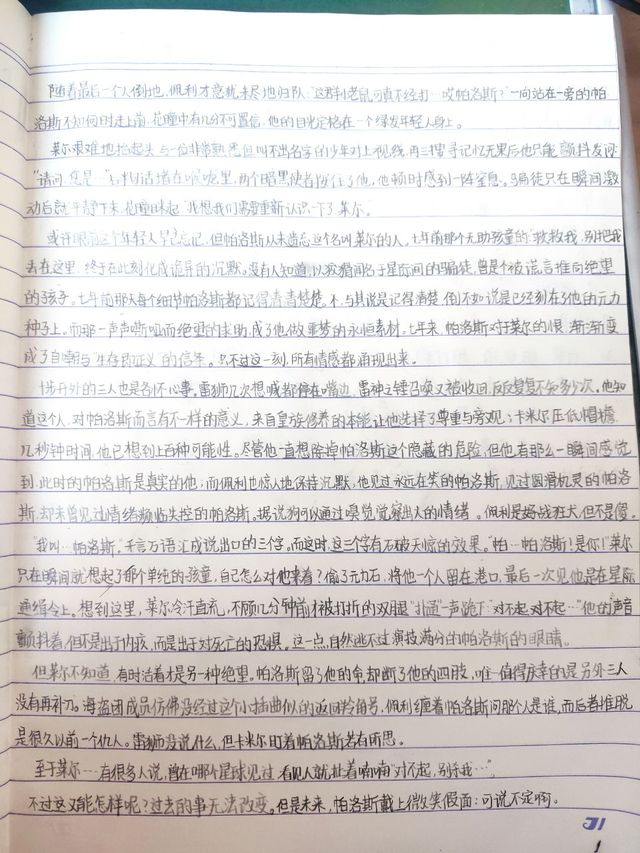 随着最后一个人倒地,佩利才意犹未尽地归队,"这群小老鼠可真不经打…哎帕洛斯?"一向站在一旁的帕
洛斯不知何时走上前,花瞳中有几分不可置信,他的目光定格在一个绿发年轻人身上。
莱尔艰难地抬起头与一位非常熟悉但叫不出名字的少年对上视线,再三搜寻记忆无果后他只能颤抖发问
"请问,您是…"剩的话堵在喉咙里,两个暗黑使者掐住了他,他顿时感到一阵窒息。骗徒只在瞬间激
动后就平静下来,花瞳眯起"我想我们需要重新认识一下了莱尔。"
或许眼前这个年轻人早已忘记,但帕洛斯从未遗忘这个名叫莱尔的人。七年前那个无助孩童的"救救我,别把我
丢在这里"终于在此刻化成诡异的沉默。没有人知道,以狡猾闻名于星际间的骗徒,曾是个被谎言推向绝望
的孩子。七年前那天每个细节帕洛斯都记得清清楚楚。不,与其说是记得清楚,倒不如说是已经刻在了他的元力
种子上。而那一声声嘶哑而绝望的求助,成了他做噩梦的永恒素材。七年来,帕洛斯对于莱尔的恨,渐渐变
成了自嘲与"生存即正义"的信条。只不过这一刻,所有情感都涌现出来。
十步开外的三人也是各怀心事。雷狮几次想喊都停在嘴边,雷神之锤召唤又被收回,反反复复不知多少次。他知
道这个人,对帕洛斯而言有不一样的意义,来自皇族修养的本能让他选择了尊重与旁观;卡米尔压低帽檐,
几秒钟时间,他已想到上百种可能性。尽管他一直想除掉帕洛斯这个隐藏的危险,但他有那么一瞬间感觉
到,此时的帕洛斯是真实的他;而佩利也惊人地保持沉默,他见过永远在笑的帕洛斯,见过圆滑机灵的帕洛
斯,却未曾见过情绪濒临失控的帕洛斯。据说狗可以通过嗅觉觉察出人的情绪。佩利是好战狂犬,但不是傻。
"我叫…帕洛斯。"千言万语汇成说出口的三个字。而这时,这三个字有石破天惊的效果。"帕…帕洛斯!是你!"莱尔
只在瞬间就想起了那个单纯的孩童,自己怎么对他来着?偷了元力石,将他一个人留在港口,最后一次见他是在星际
通缉令上。想到这里,莱尔冷汗直流,不顾几分钟前才被打折的双腿"扑通"一声跪下"对不起,对不起…"他的声音
颤抖着,但不是出于内疚,而是出于对死亡的恐惧。这一点,自然逃不过演技满分的帕洛斯的眼睛。
但莱尔不知道,有时活着才是另一种绝望。帕洛斯留了他的命,却断了他的四肢,唯一值得庆幸的是另外三人
没有再补刀。海盗团成员仿佛没经过这个小插曲似的返回羚角号,佩利缠着帕洛斯问那个人是谁,而后者推脱
是很久以前一个仇人。雷狮没说什么,但卡米尔盯着帕洛斯若有所思。
至于莱尔…有很多人说,曾在哪个星球见过,看见人就扯着喃喃"对不起,别杀我…"。
不过这又能怎样呢?过去的事无法改变。但是未来,帕洛斯戴上微笑假面:可说不定啊。